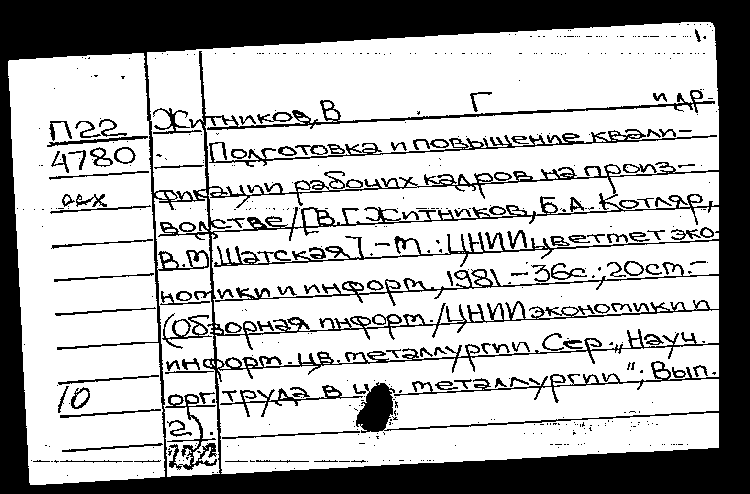 1.
П22 Житников, В Г и др.
4780 Подготовка и повышение квали-
фикации рабочих кадров на произ-
водстве/[В.Г. Житников, Б.А. Котляр,
В.М. Шатская]. - М.: ЦНИИцветмет эко-
номики и информ., 1981. - 36с.; 20см. -
(Обзорная информ./ЦНИИ экономики и
информ. цв. металлургии. Сер. „Науч.
10 орг. труда в цв. металлургии"; Вып.
2).